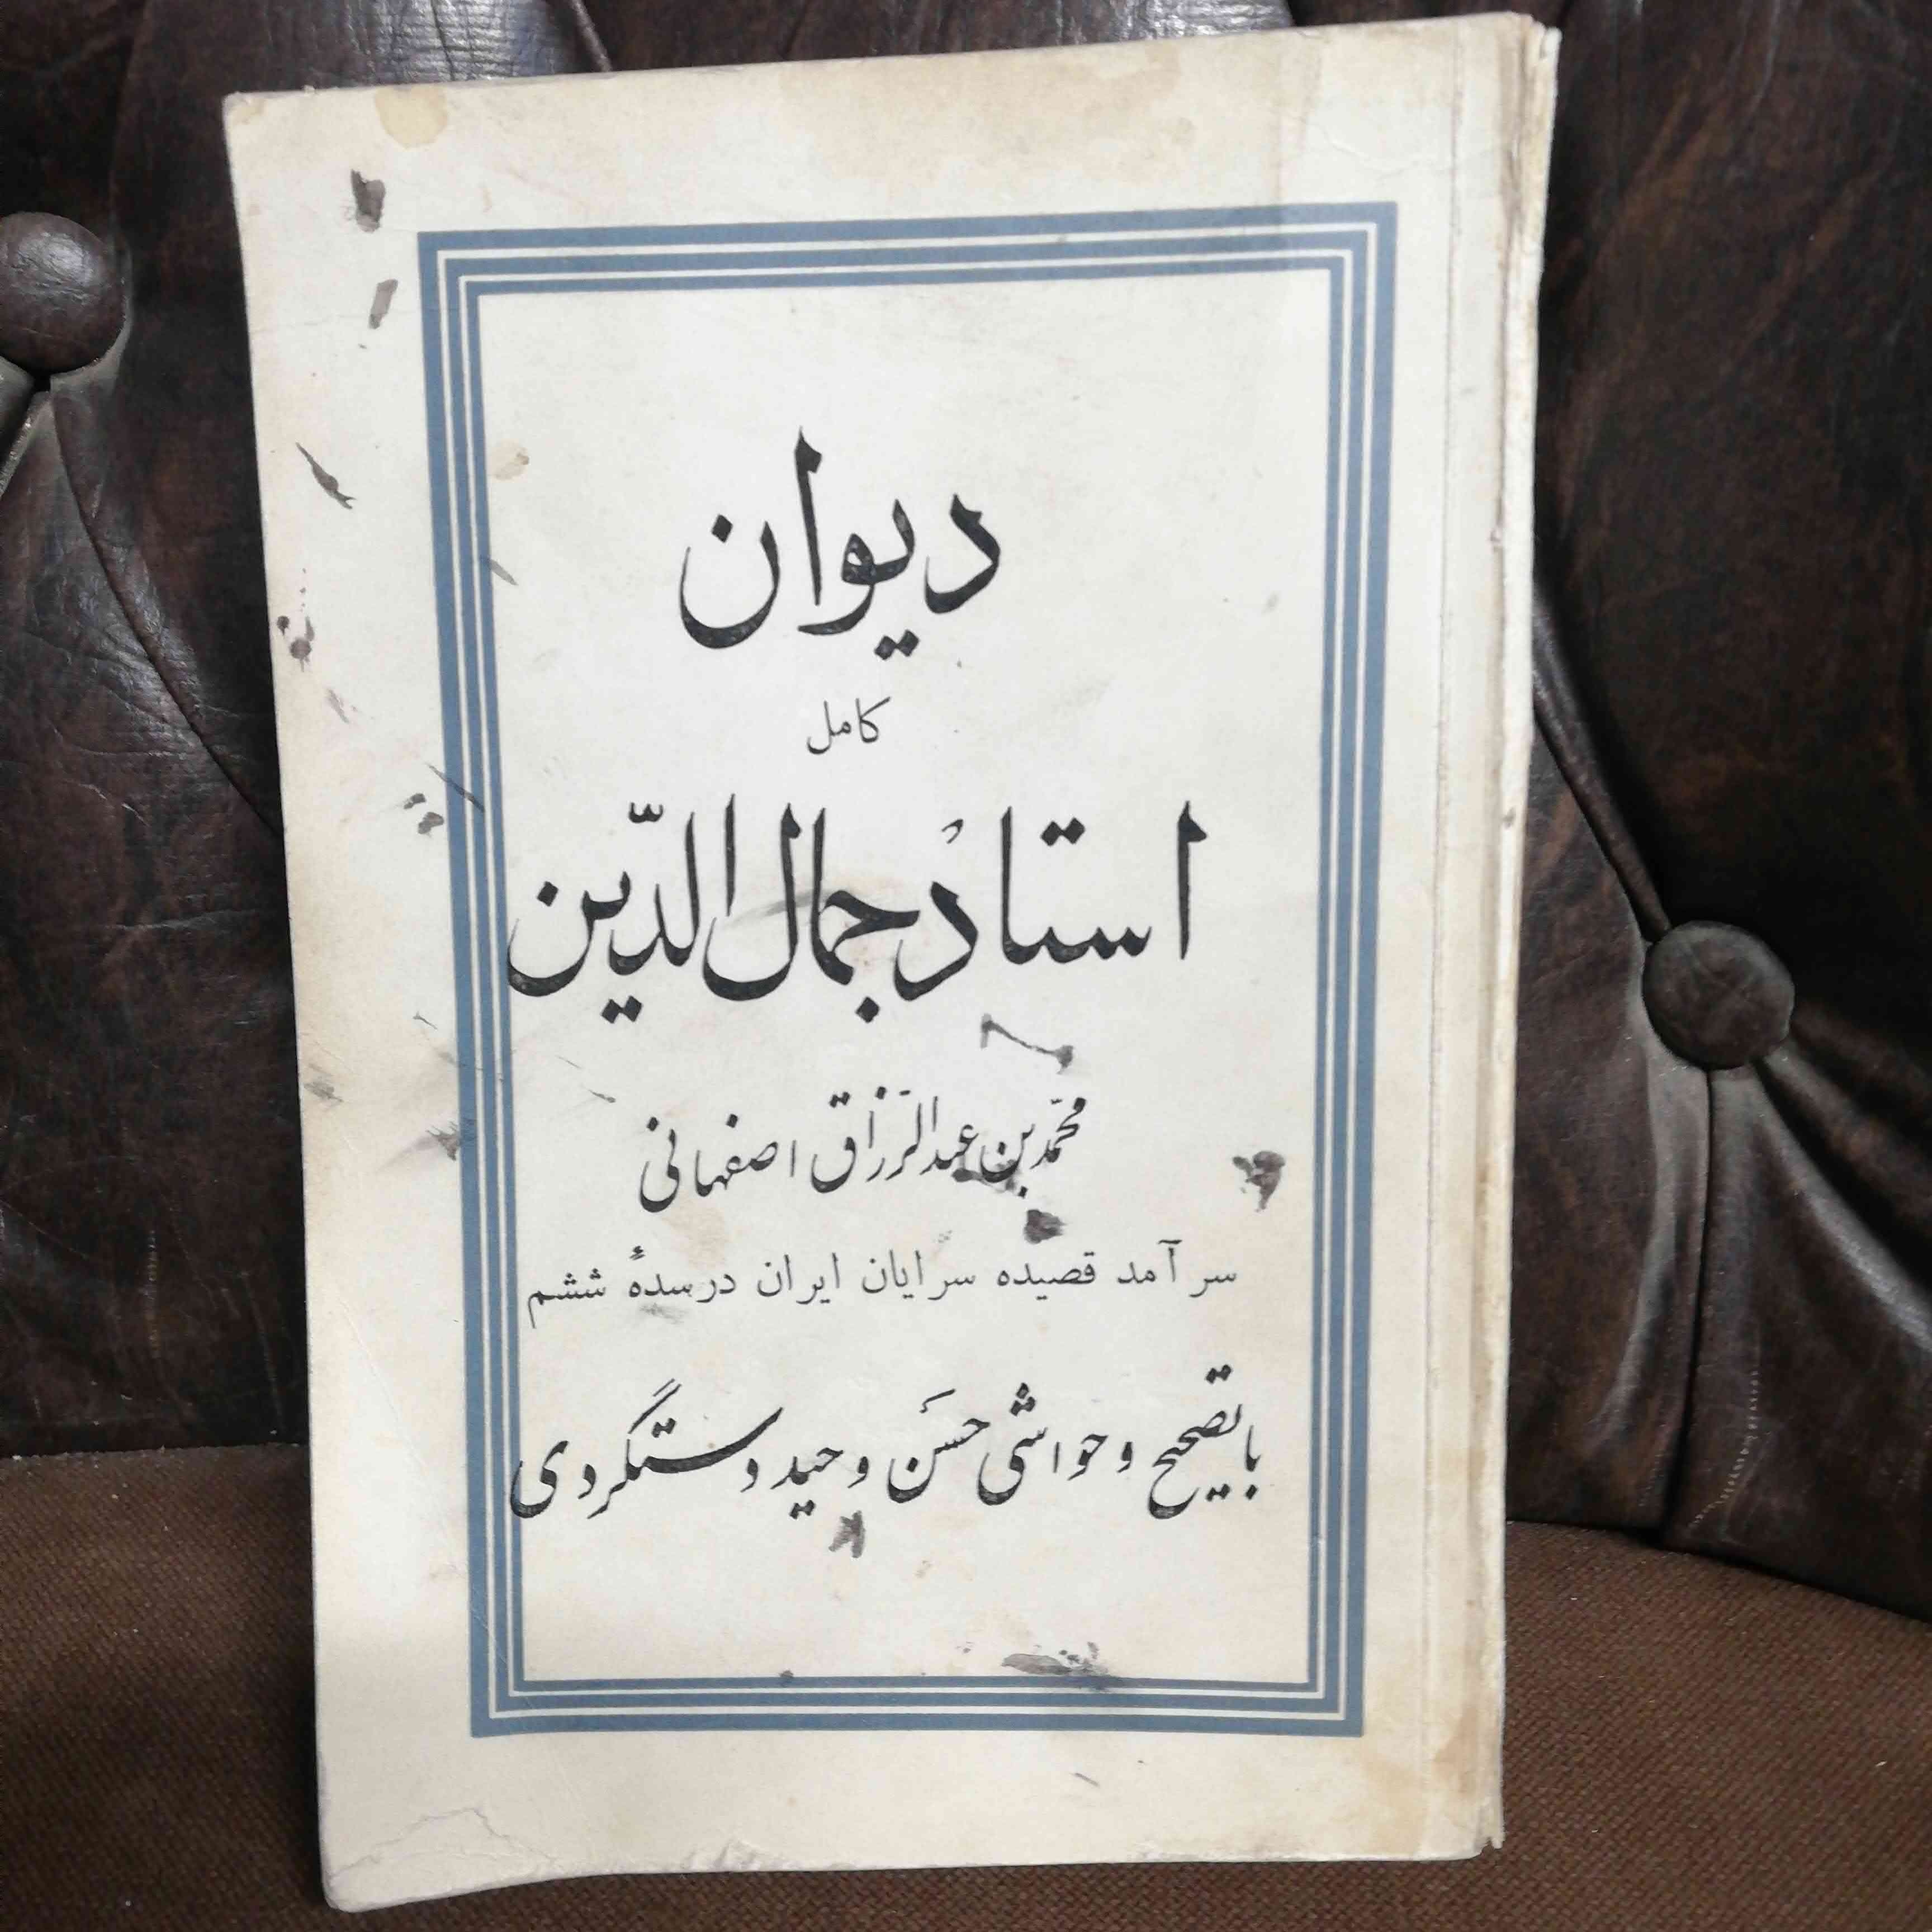 دیوان
کامل
استاد جمال‌الدّین
محمّد بن عبدالرّزاق اصفهانی
سر آمد قصیده سرایان ایران در سدهٔ ششم
با تصحیح و حواشی حسَن وحید دستگردی